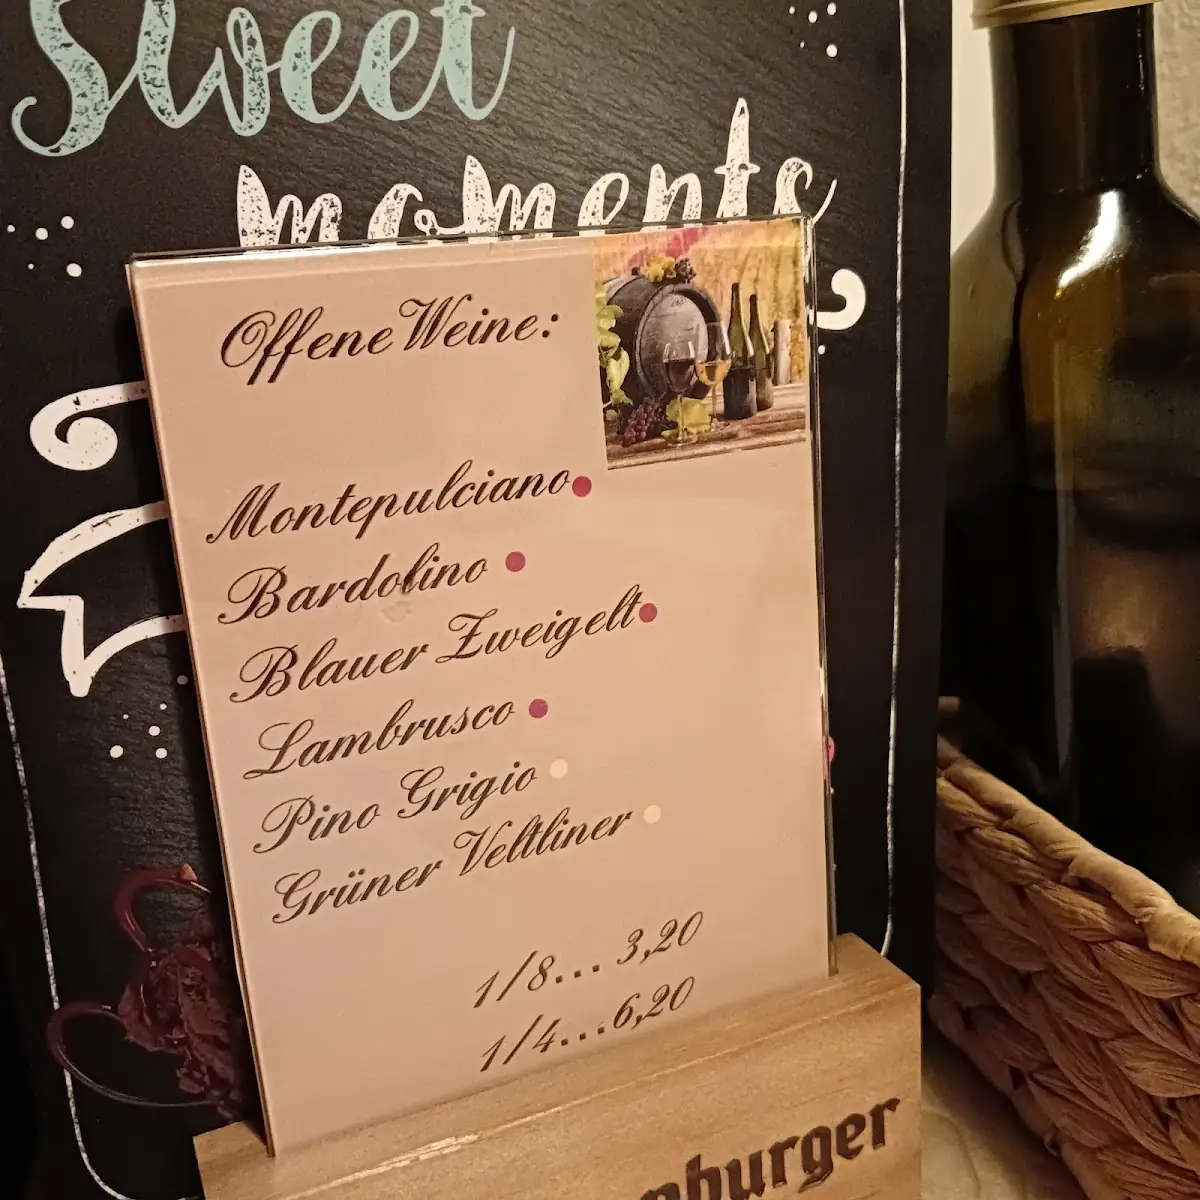 Sweet
moments
Offene Weine:
Montepulciano
Bardolino
Blauer Zweigelt
Lambrusco
Pino Grigio
Grüner Veltliner
1/8... 3,20
1/4...6,20